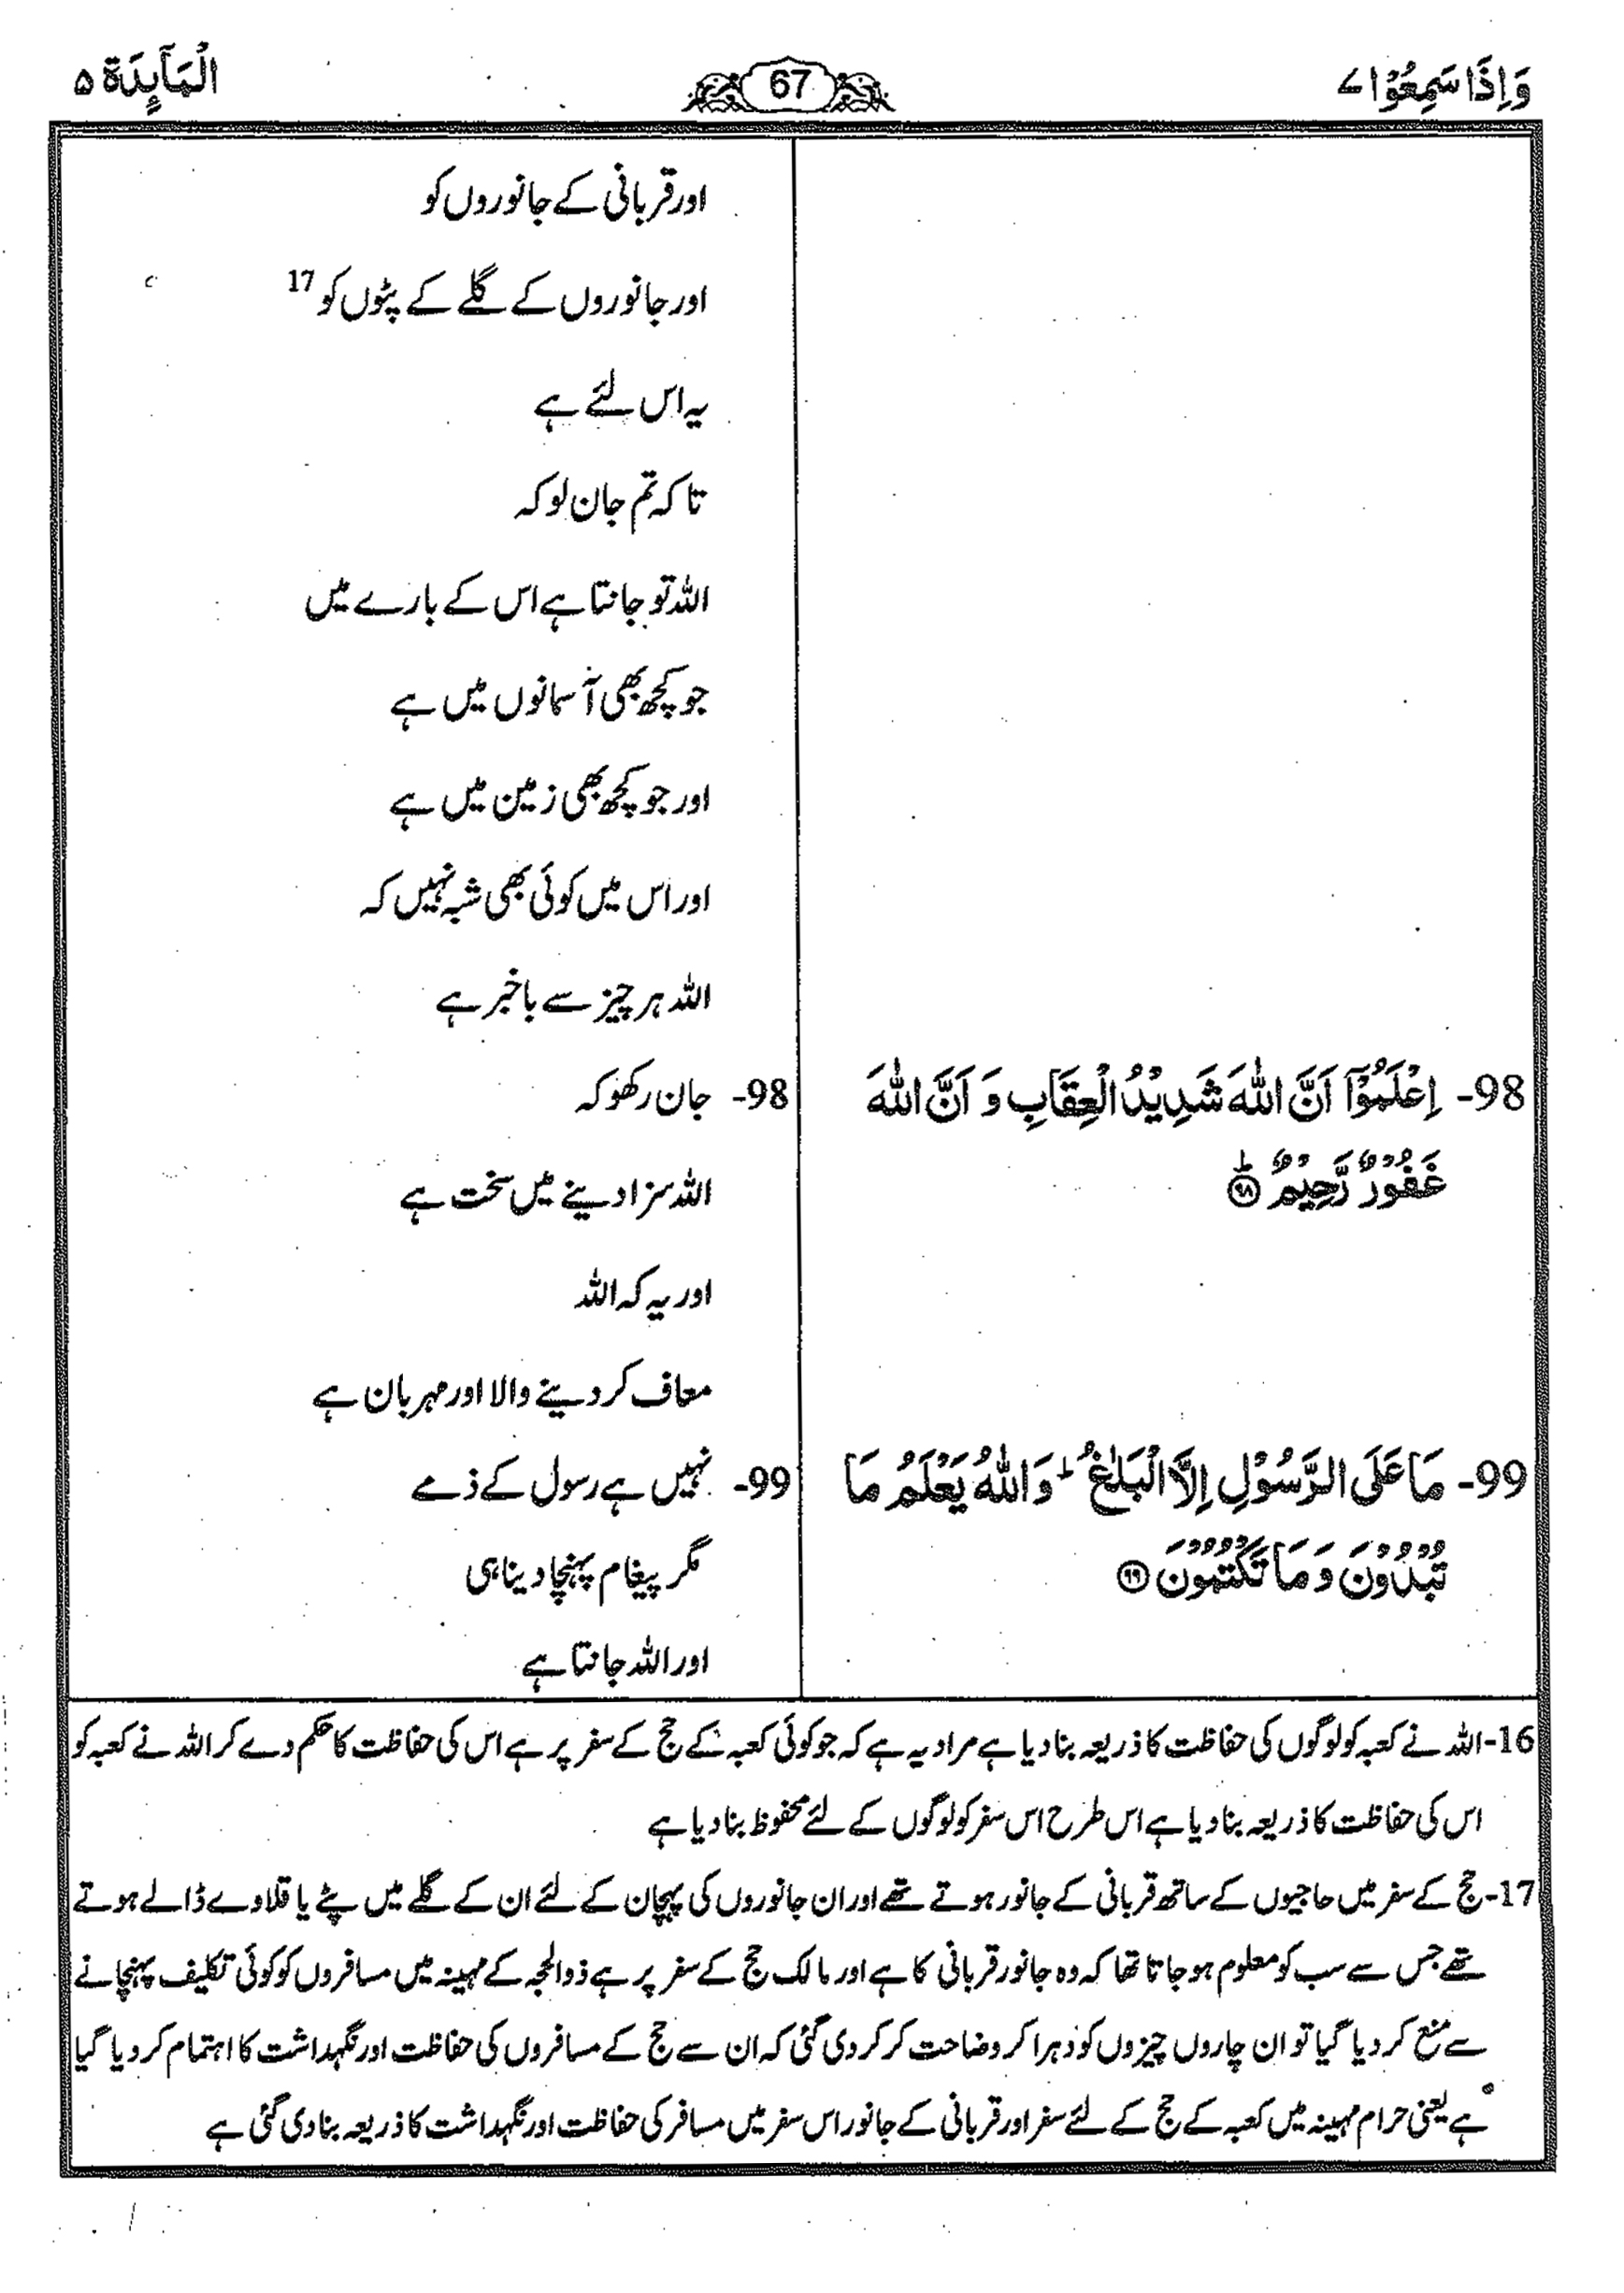 وَاِذَا سَمِعُوْا ۷
67
الْمَآىِٕدَة ۵
اور قربانی کے جانوروں کو
اور جانوروں کے گلے کے پٹوں کو 17
یہ اس لئے ہے
تا کہ تم جان لو کہ
اللہ تو جانتا ہے اس کے بارے میں
جو کچھ بھی آسمانوں میں ہے
اور جو کچھ بھی زمین میں ہے
اور اس میں کوئی بھی شبہ نہیں کہ
اللہ ہر چیز سے باخبر ہے
98- اِعْلَمُوْۤا اَنَّ اللّٰهَ شَدِيْدُ الْعِقَابِ وَ اَنَّ اللّٰهَ
غَفُوْرٌ رَّحِيْمٌ ؕ۹۸
98- جان رکھو کہ
اللہ سزا دینے میں سخت ہے
اور یہ کہ اللہ
معاف کر دینے والا اور مہربان ہے
99- مَا عَلَى الرَّسُوْلِ اِلَّا الْبَلٰغُ ؕ وَاللّٰهُ يَعْلَمُ مَا
تُبْدُوْنَ وَ مَا تَكْتُمُوْنَ ۹۹
99- نہیں ہے رسول کے ذمے
مگر پیغام پہنچا دینا ہی
اور اللہ جانتا ہے
16-اللہ نے کعبہ کو لوگوں کی حفاظت کا ذریعہ بنا دیا ہے مراد یہ ہے کہ جو کوئی کعبہ کے حج کے سفر پر ہے اس کی حفاظت کا حکم دے کر اللہ نے کعبہ کو
اس کی حفاظت کا ذریعہ بنا دیا ہے اس طرح اس سفر کو لوگوں کے لئے محفوظ بنا دیا ہے
17-حج کے سفر میں حاجیوں کے ساتھ قربانی کے جانور ہوتے تھے اور ان جانوروں کی پہچان کے لئے ان کے گلے میں پٹے یا قلاوے ڈالے ہوتے
تھے جس سے سب کو معلوم ہو جاتا تھا کہ وہ جانور قربانی کا ہے اور مالک حج کے سفر پر ہے ذوالحجہ کے مہینہ میں مسافروں کو کوئی تکلیف پہنچانے
سے منع کر دیا گیا تو ان چاروں چیزوں کو دہرا کر وضاحت کر کر دی گئی کہ ان سے حج کے مسافروں کی حفاظت اور نگہداشت کا اہتمام کر دیا گیا
ہے یعنی حرام مہینہ میں کعبہ کے حج کے لئے سفر اور قربانی کے جانور اس سفر میں مسافر کی حفاظت اور نگہداشت کا ذریعہ بنا دی گئی ہے